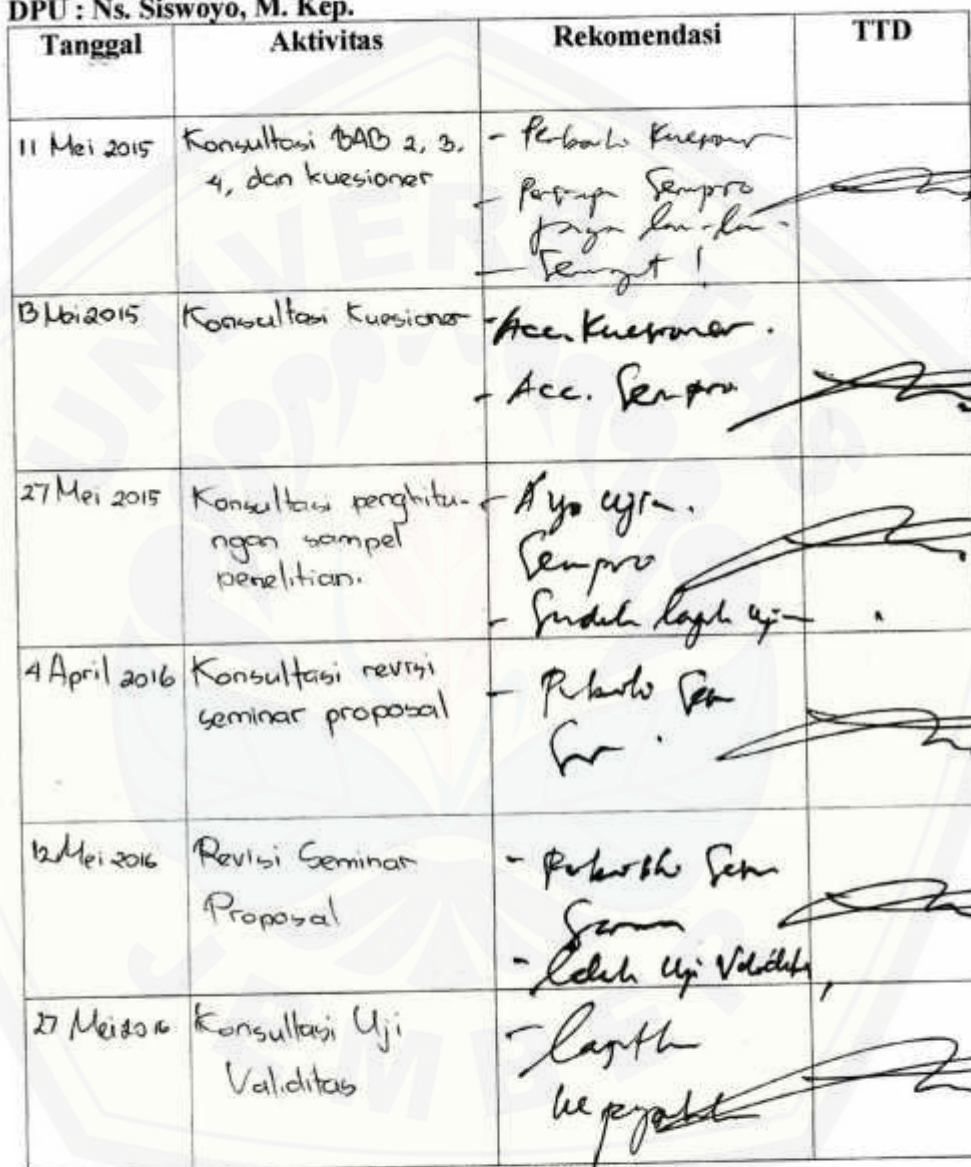 DPU : Ns. Siswoyo, M. Kep.
Tanggal Aktivitas Rekomendasi TTD
11 Mei 2015 Konsultasi BAB 2, 3,
4, dan kuesioner
- Perbaiki Kuesioner
- Sempro
- Semangat !
13 Mei 2015 Konsultasi Kuesioner
- Acc. Kuesioner.
- Acc. Sempro
27 Mei 2015 Konsultasi penghitu-
ngan sampel
penelitian.
- Ayo ujian.
Sempro
- Sudah layak uji
4 April 2016 Konsultasi revisi
seminar proposal
- Perbaiki
12 Mei 2016 Revisi Seminar
Proposal
- Perbaiki
Saran
- Uji Validitas
27 Mei 2016 Konsultasi Uji
Validitas
- ke
UNIVERSITAS
JEMBER